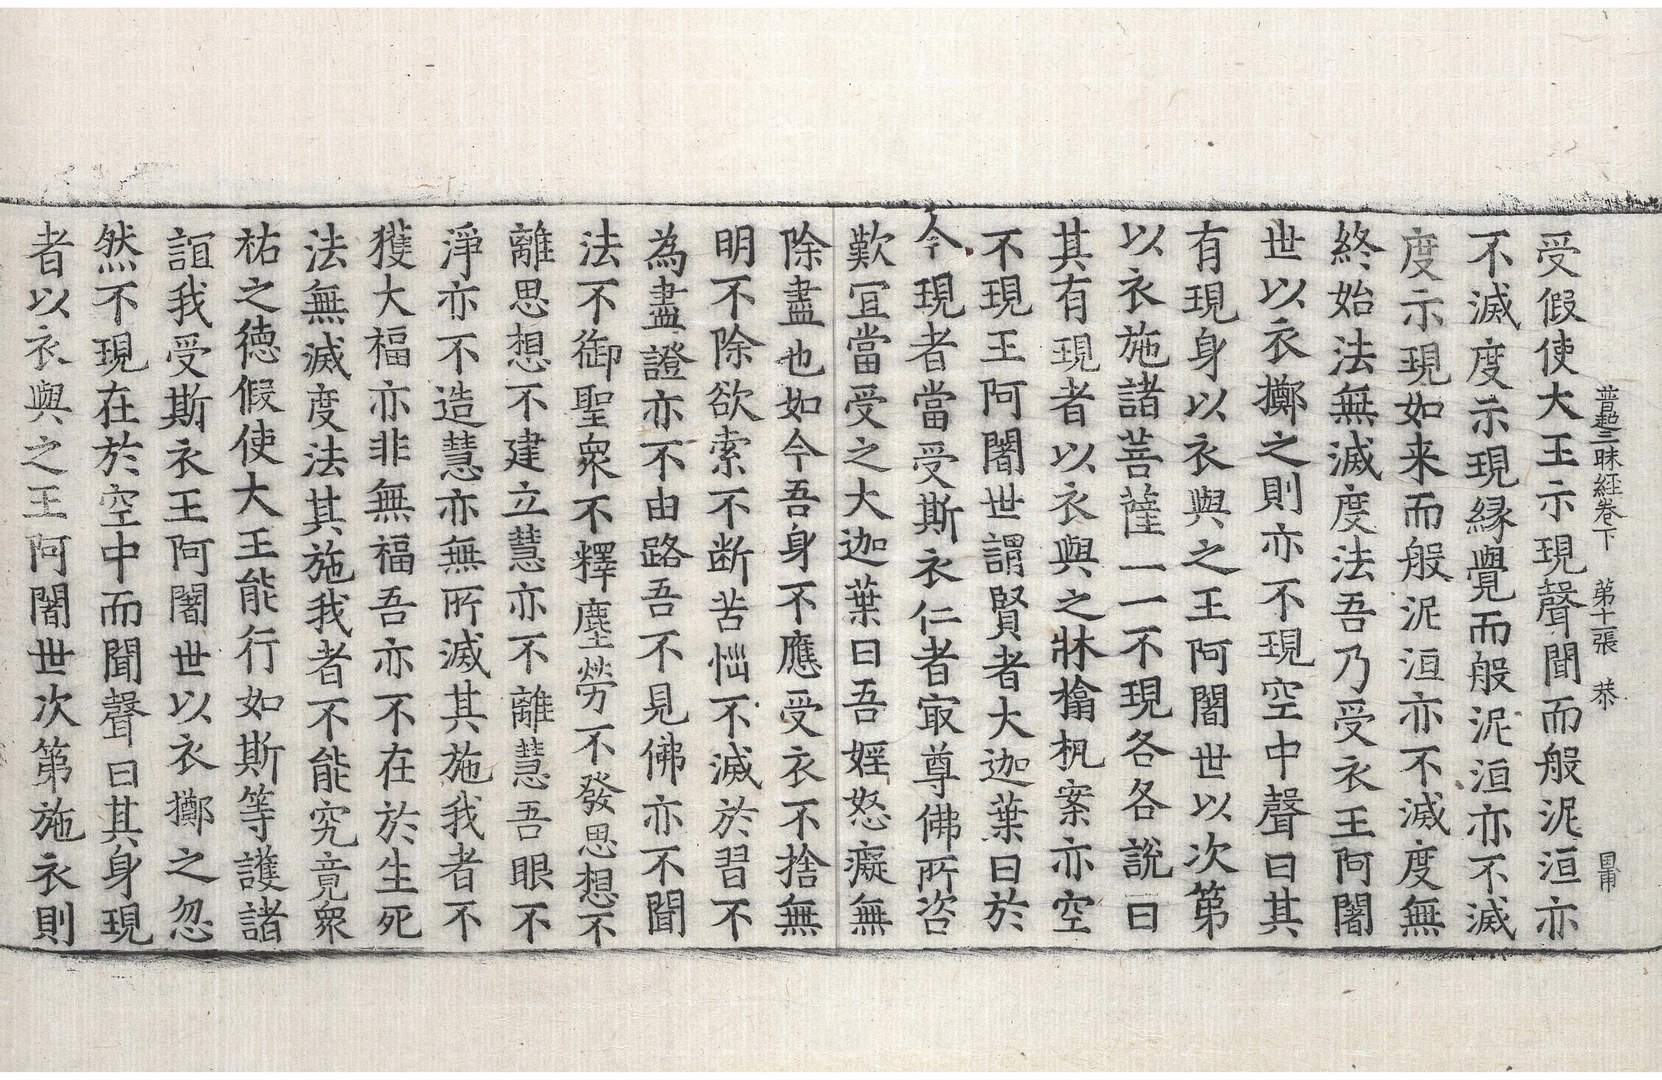 普超三昧經卷下　第十一張　恭
受假使大王示現聲聞而般泥洹亦
不滅度示現縁覺而般泥洹亦不滅
度示現如来而般泥洹亦不滅度無
終始法無滅度法吾乃受衣王阿闍
世以衣擲之則亦不現空中聲曰其
有現身以衣與之王阿闍世以次第
以衣施諸菩薩一一不現各各說曰
其有現者以衣與之牀橁机案亦空
不現王阿闍世謂賢者大迦葉曰於
今現者當受斯衣仁者㝡尊佛所咨
歎冝當受之大迦葉曰吾婬怒癡無
除盡也如今吾身不應受衣不捨無
明不除欲索不断苦惱不滅於習不
為盡證亦不由路吾不見佛亦不聞
法不御聖衆不釋塵勞不發思想不
離思想不建立慧亦不離慧吾眼不
淨亦不造慧亦無所滅其施我者不
獲大福亦非無福吾亦不在於生死
法無滅度法其施我者不能究竟衆
祐之德假使大王能行如斯等護諸
誼我受斯衣王阿闍世以衣擲之忽
然不現在於空中而聞聲曰其身現
者以衣與之王阿闍世次第施衣則